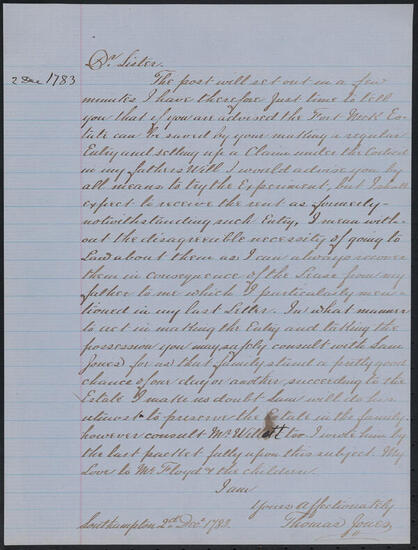 Dr. Sister.
2 Dec 1783
The post will set out in a few
minutes I have therefore Just time to tell
you that if you are advised the Fort
tate can be saved by your making a regular
Entry and setting up a Claim under the Codicil
in my fathers Will I would advise you by
all means to try the Experiment, but I shall
expect to receive the rent as formerly
notwithstanding such Entry, I mean with-
out the disagreeable necessity of going to
Law about them as I can always recover
them in consequence of the Lease from my
father to me which I particularly men-
tioned in my last Letter. In what manner
to act in making the Entry and taking the
possession you may safely consult with Sam
Jones for as that family stand a pretty good
chance of our day or another succeeding to the
Estate I make no doubt Sam will do his
utmost to preserve the Estate in the family.
however consult Mr. Willett too I wrote him by
the last packet fully upon this subject. My
Love to Mr. Floyd & the children.
I am
Yours affectionately
Southampton 2d. Decr. 1783. Thomas Jones